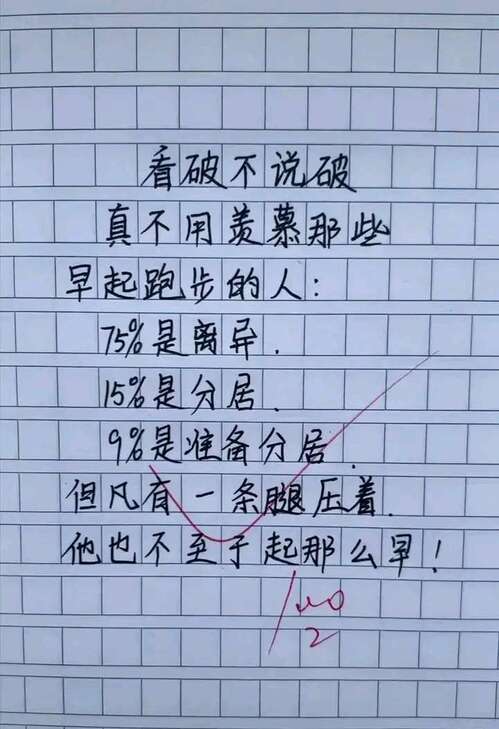 看破不说破
真不用羡慕那些
早起跑步的人:
75%是离异.
15%是分居.
9%是准备分居.
但凡有一条腿压着.
他也不至于起那么早!
100
2